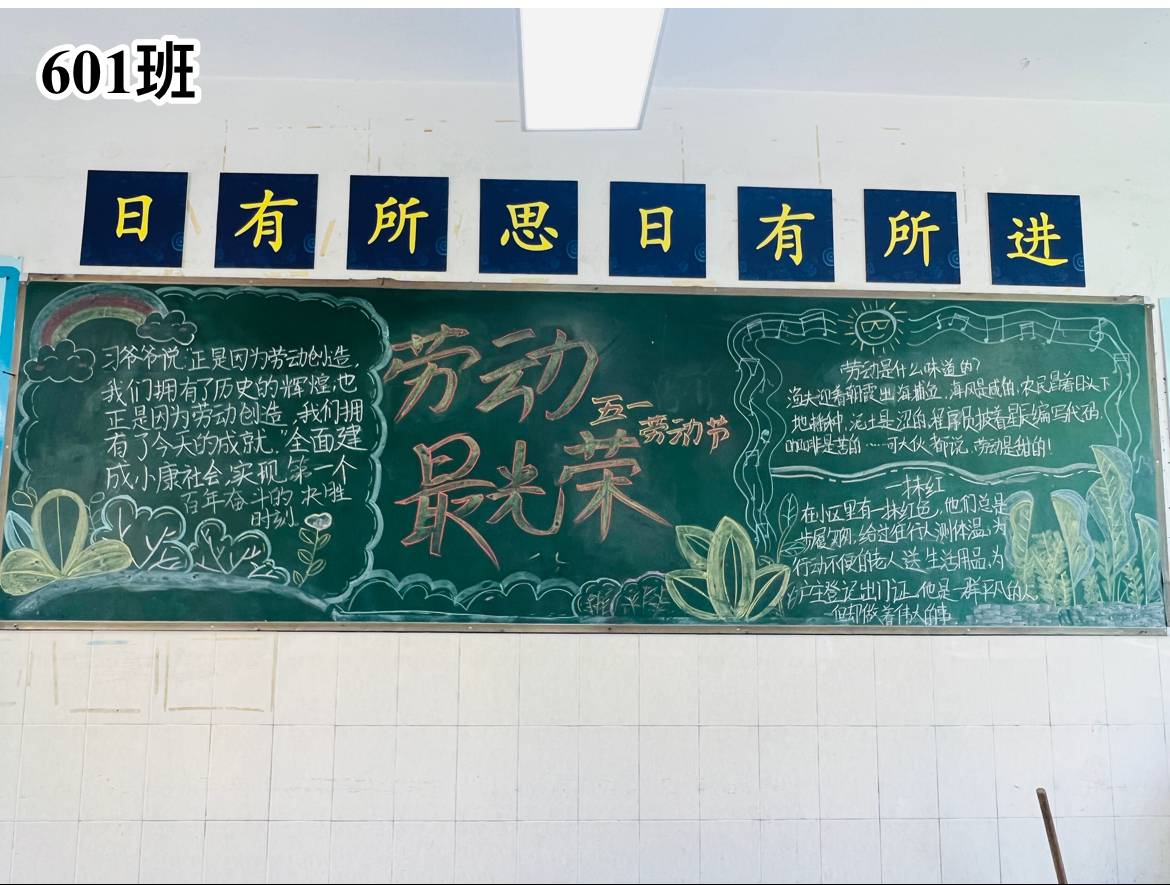 601班
日有所思日有所进
习爷爷说:正是因为劳动创造,
我们拥有了历史的辉煌,也
正是因为劳动创造,我们拥
有了今天的成就."全面建
成小康社会,实现第一个
百年奋斗的决胜
时刻.
劳动
最光荣
五一
劳动节
劳动是什么味道的?
渔夫迎着朝霞出海捕鱼,海风是咸的,农民是着日头下
地播种,泥土是涩的,程序员披着星辰编写代码,
咖啡是苦的……可大伙都说,劳动是甜的!
一抹红
在小区里有一抹红色,他们总是
步履匆匆,给过往行人测体温,为
行动不便的老人送生活用品,为
户主登记出门证,他是一群平凡的人
但却做着伟大的事